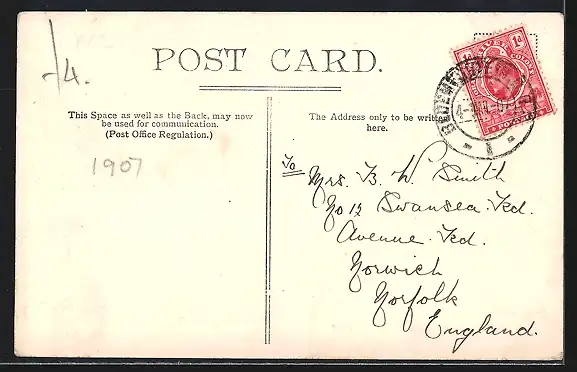 1/4.
POST CARD.
This Space as well as the Back, may now
be used for communication.
(Post Office Regulation.)
The Address only to be written
here.
1907
To
Mrs. B. W. Smith
No 12 Swansea Rd.
Avenue Rd.
Norwich
Norfolk
England.
1d 1d